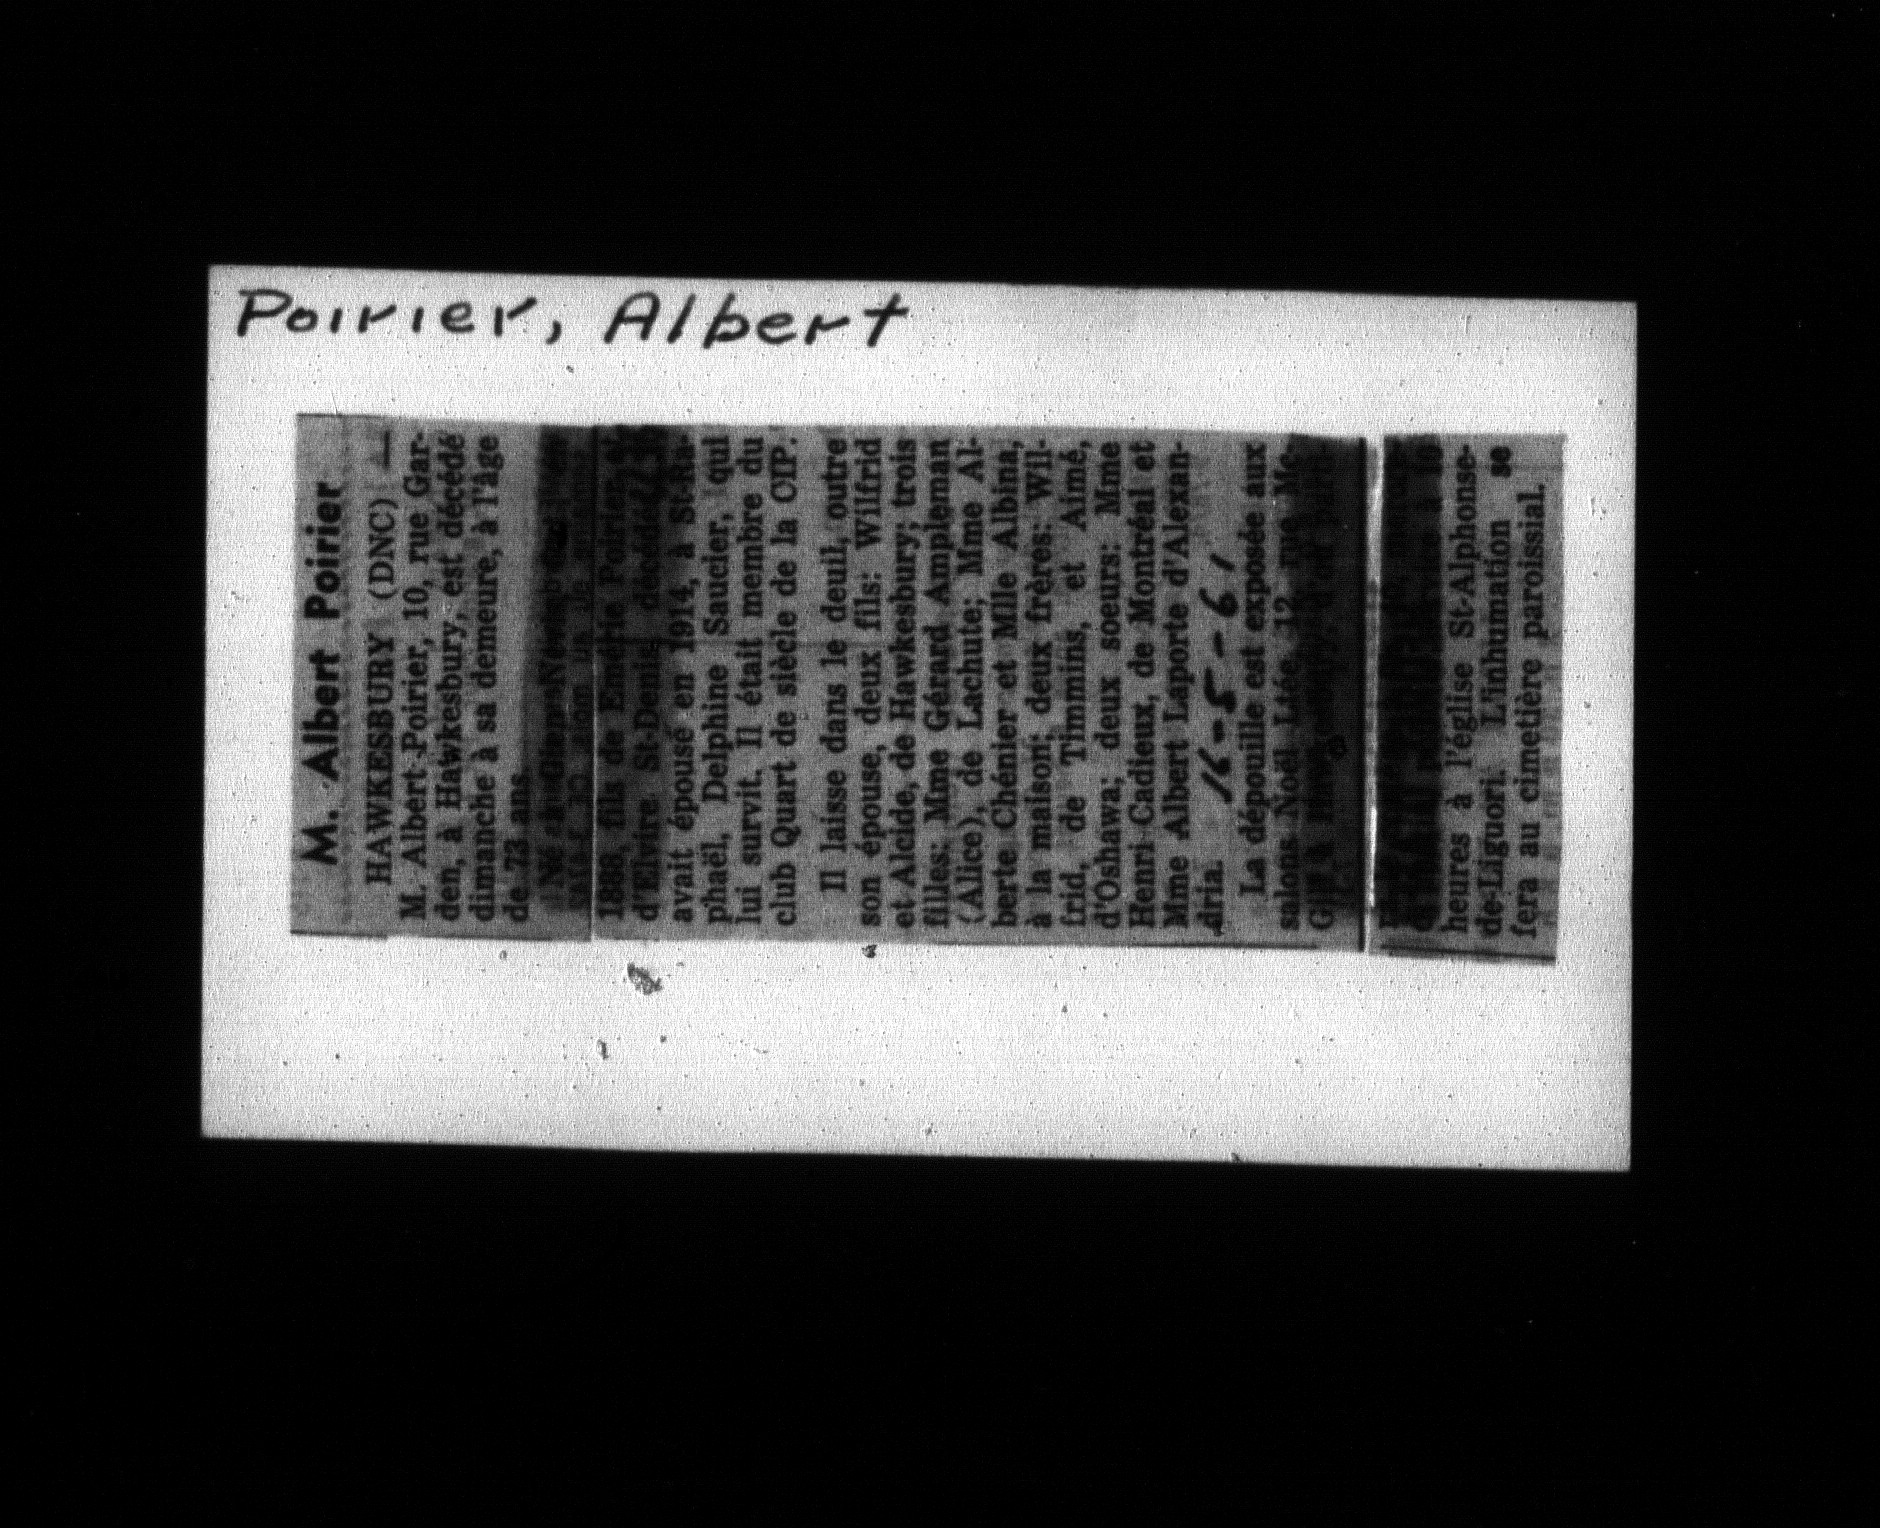 Poirier, Albert
M. Albert Poirier
HAWKESBURY (DNC) —
M. Albert Poirier, 10, rue Gar-
den, à Hawkesbury, est décédé
dimanche à sa demeure, à l'âge
de 73 ans.
Né à Glen
1888, fils de Emérie Poirier et
d'Elvire St-Denis, décédés, il
avait épousé en 1914, à St-Ra-
phaël, Delphine Saucier, qui
lui survit. Il était membre du
club Quart de siècle de la CIP.
Il laisse dans le deuil, outre
son épouse, deux fils: Wilfrid
et Alcide, de Hawkesbury; trois
filles: Mme Gérard Ampleman
(Alice), de Lachute; Mme Al-
berte Chénier et Mlle Albina,
à la maison; deux frères: Wil-
frid, de Timmins, et Aimé,
d'Oshawa; deux soeurs: Mme
Henri Cadieux, de Montréal et
Mme Albert Laporte d'Alexan-
dria.
16-5-61
La dépouille est exposée aux
salons Noël Ltée, 12 rue Mc-
à 10
heures à l'église St-Alphonse-
de-Liguori. L'inhumation se
fera au cimetière paroissial.